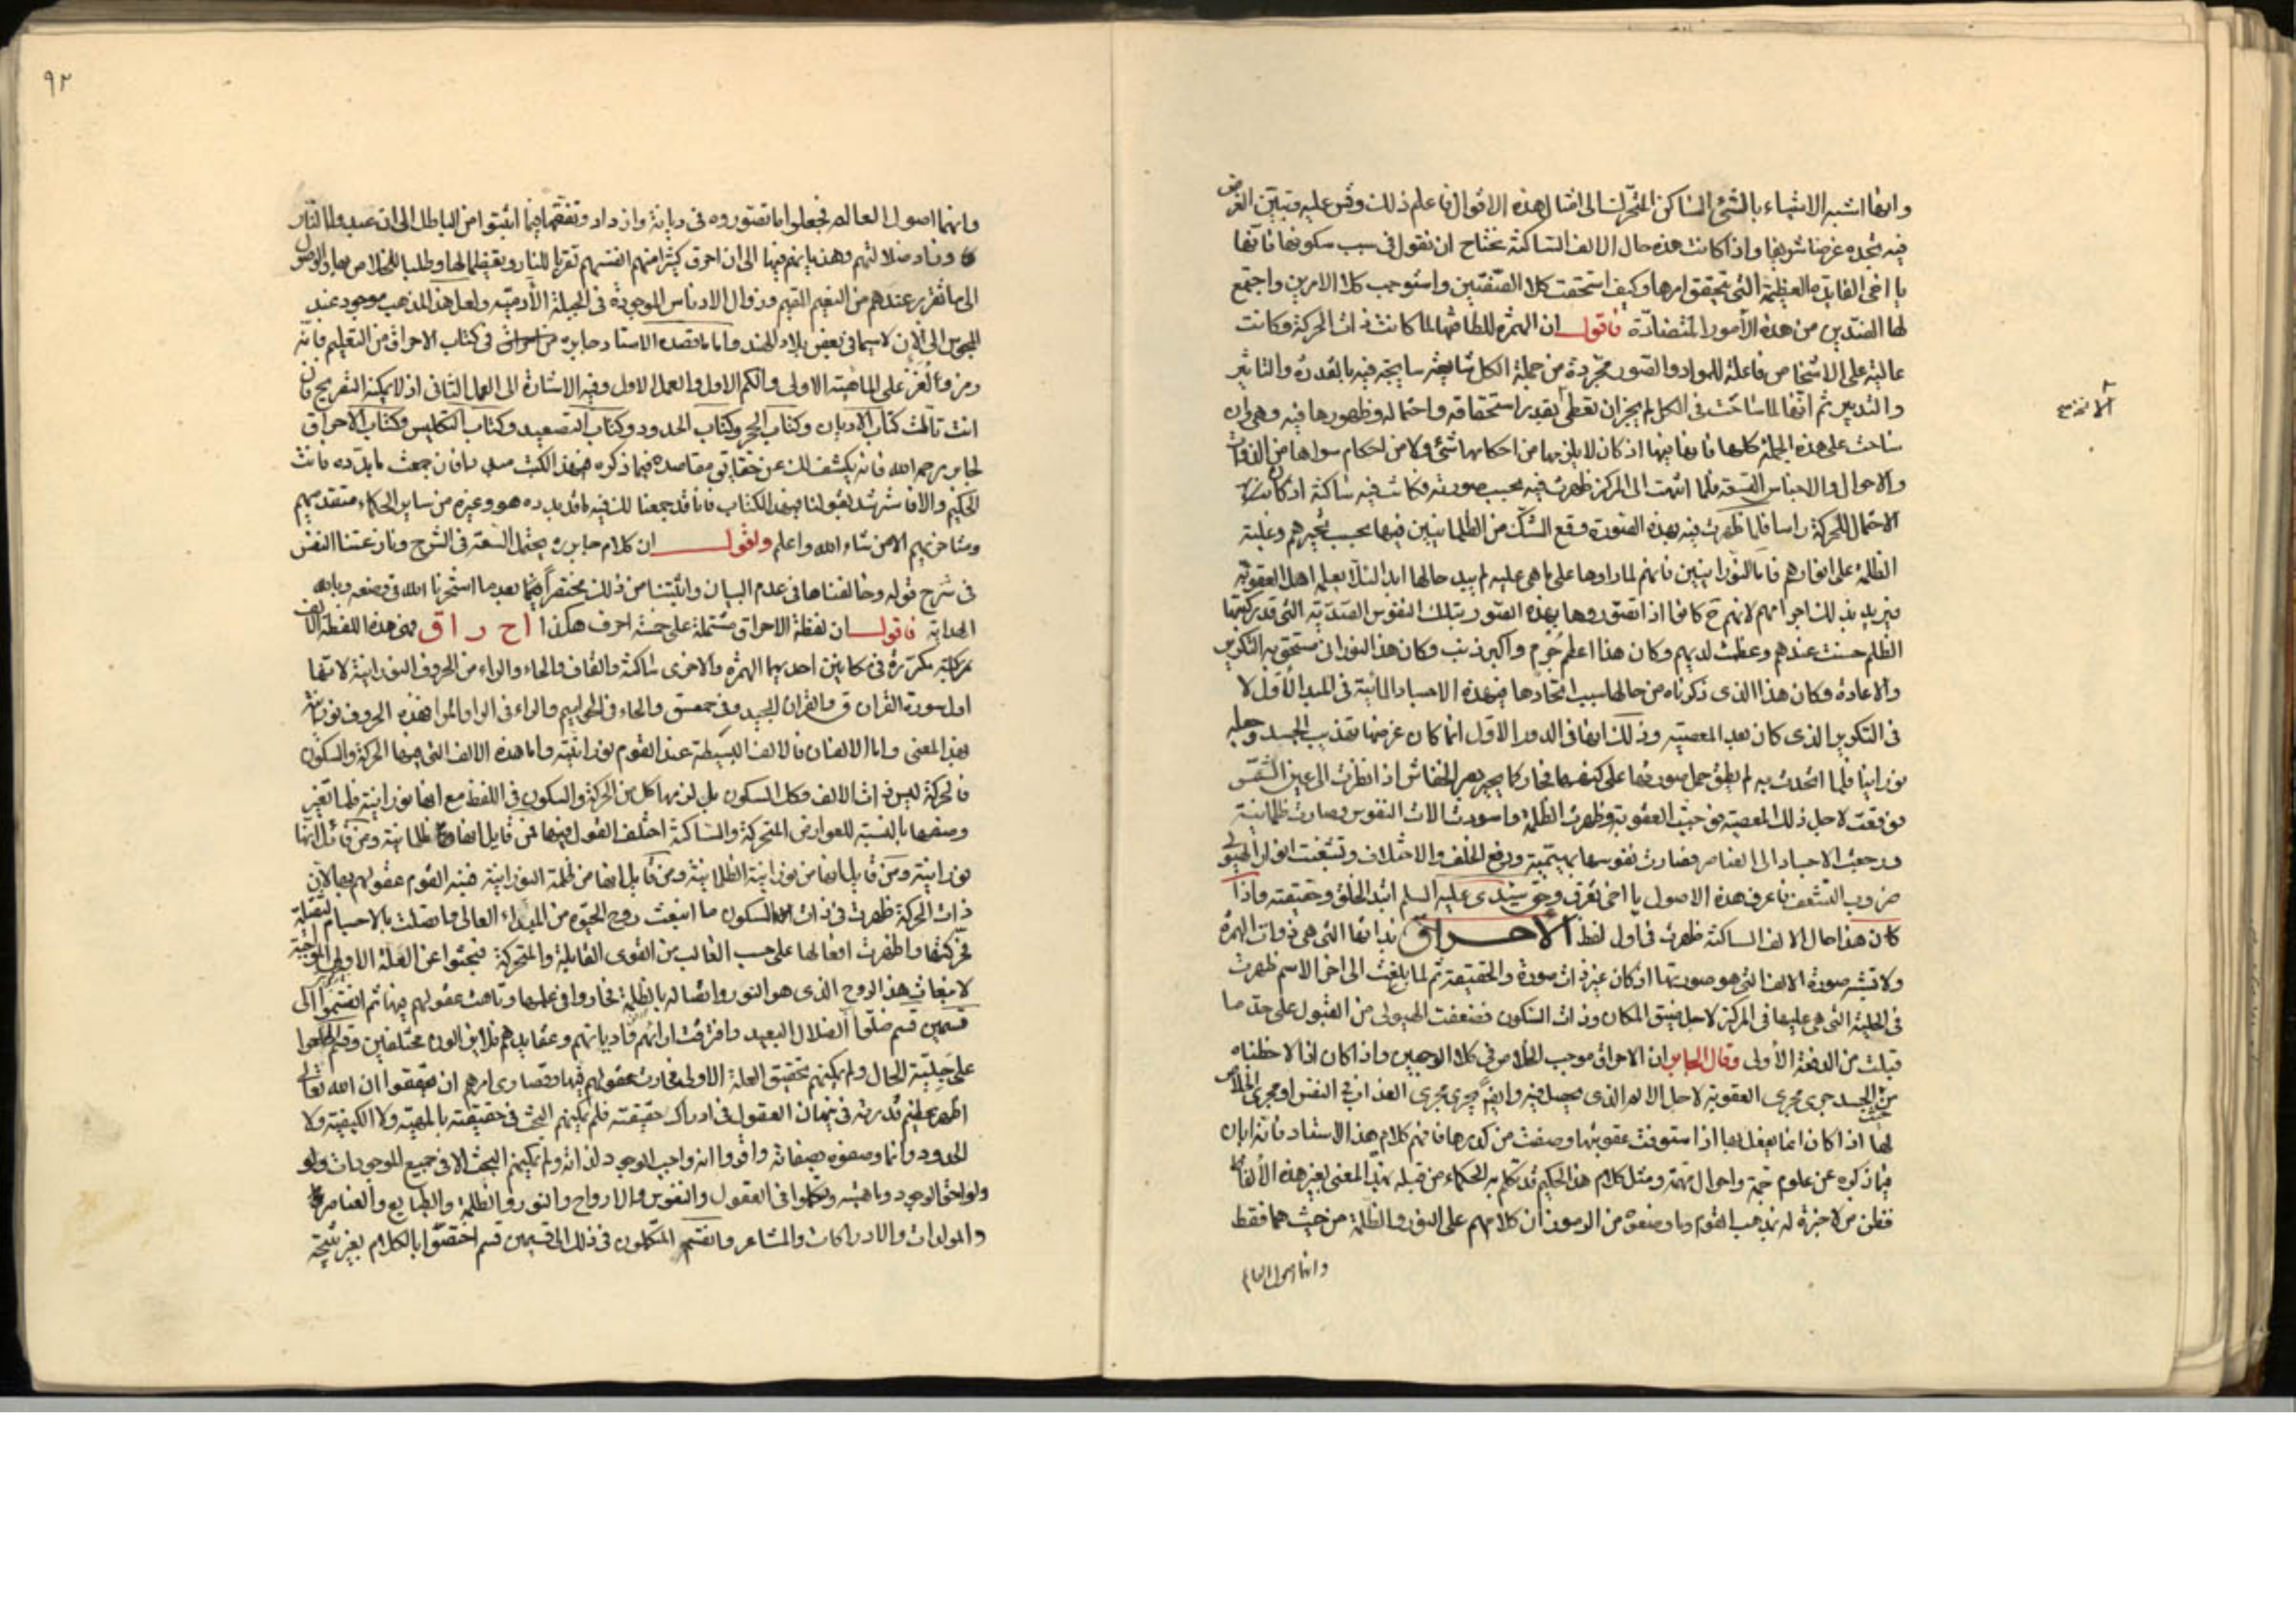 وانها اشبه الاشياء بالشئ الساكن المتحرك الى امثال هذه الاقوال فاعلم ذلك وقس عليه وتبين الغرض
فيه تجده غرضا شريفا واذا كانت هذه حال الالف الساكنة نحتاج ان نقول فى سبب سكونها فانها
يا اخى الفايدة العظيمة التى تحقق امرها وكيف استحقت كلا الصفتين واستوجب كلا الامرين واجتمع
لها الضدين من هذه الأمور المتضادة فاقول ان الهمزة للطافتها لما كانت ذات الحركة وكانت
عالية على الاشخاص فاعلة للمواد والصور مجردة من جملة الكل شايعة سابحة فيه بالقدرة والتاثير
والتدبير ثم انها لما شاعت فى الكل لم يجز ان تعطى بقدر استحقاقه واحتماله وظهورها فيه وهى وان
شاعت على هذه الجملة كلها فانها فيها اذ كان لا يلزمها من احكامها شئ ولا من احكام سواها من الذوات
والاحوال والاجناس فلما انتهت الى المركز ظهرت فيه بحسب صورته فكانت فيه ساكنة اذ كان
الاحتمال للحركة راسا فلما ظهرت فيه بهذه الصورة وقع الشك من الظلمانيين فيها بحسب تحيرهم وغلبة
الظلمة على انوارهم فاما النورانيين فانهم لما راوها على ما هى عليه لم يبد حالها ابدا لئلا يعلم اهل العقوبة
فيزيد بذلك اجرامهم لانهم ح كانوا اذا تصوروها بهذه الصور بتلك النفوس الصدية التى قد ركبتها
الظلم حسنت عندهم وعظمت لديهم وكان هذا اعظم جُرم واكبر ذنب وكان هذا النورانى مستحق به التكرير
والاعادة وكان هذا الذى ذكرناه من حالها سبب اتحادها بهذه الاجساد المائية فى المبدا الأول لا
فى التكرير الذى كان بعد المعصية وذلك انها فى الدور الاول انما كان غرضها تهذيب الجسد وجعله
نورانيا فلما اتحدت به لم يطق حمل صورتها على كنهها فحار كما يحير بصر الخفاش اذا نظرت الى عين الشمس
فوقعت لاجل ذلك المعصية فوجبت العقوبة وظهرت الظلمة واسودت الات النفوس وصارت ظلمانية
ورجعت الاجساد الى العناصر وصارت نفوسها بهيمية ووقع الخلف والاختلاف وتشعبت انوار الهيولى
ضروب التشعب فاعرف هذه الاصول يا اخى تعرف وحق سيدى عليه السلم ابتدا الخلق وحقيقته واذا
كان هذا حال الالف الساكنة ظهرت فى اول لفظ الاحراق بذاتها التى هى ذوات الهمزة
ولا تشبه صورة الالف التى هو صورتها اذ كان غير ذات صورة والحقيقة ثم لما بلغت الى اخر الاسم ظهرت
فى الحلية التى هى عليها فى المركز لاجل ضيق المكان وذات السكون فضعفت الهيولى من القبول على حد ما
قبلت من الدفعة الأولى وقال الجابر ان الاحراق موجب الخلاص فى كلا الوجهين واذا كان اذا لاحظناه
من حيث الجسد جرى مجرى العقوبة لاجل الالم الذى يحصل فيه وايضا يجرى مجرى العذاب فى النفس او مجرى الخلاص
لها اذا كان انما يفعل بها اذا استوفت عقوبتها وصفت من كدرها فافهم كلام هذا الاستاد فانه ابان
فيما ذكره عن علوم جمة واحوال مهمة ومثل كلام هذا الحكيم قد تكلم به الحكماء من قبله بهذا المعنى بغير هذه الألفاظ
فظن من لا خبرة له بمذهب القوم وما وضعوه من الرموز ان كلامهم على النور والظلمة من حيث هما فقط
وانهما اصول العالم
٩٢
وانهما اصول العالم فجعلوا ما تصوروه فى ديانة وازداد وتفقهما فيما اثبتوا من الباطل الى ان عبدوا النار
وزاد ضلالتهم وهذيانهم فيها الى ان احرق كثيرا منهم انفسهم تقربا للنار وتعظيما لها وطلبا للخلاص بها والوصول
الى ما تقرر عندهم من النعيم المقيم وزوال الادناس الموجودة فى الجبلة الأدمية ولعل هذا المذهب موجود عند
المجوس الى الان لاسيما فى بعض بلاد الهند واما ما قصده الاستاد جابره فى كتاب الاحراق من التعليم فانه
رمز والغز على الماهية الاولى والكم الاول والعمل الاول وفيه الاشارة الى العمل الثانى اذ لا يمكنه التصريح فان
انت تاملت كتاب الاديان وكتاب الحجر وكتاب الحدود وكتاب التصعيد وكتاب التكليس وكتاب الاحراق
لجابر رحمه الله فانه يكشف لك عن حقايق مقاصده فيما ذكره بهذا الكتب فان جمعت ما بدده فانت
الحكيم والا فاسترشد بقولنا بهذا الكتاب فانا قد جمعنا لك فيه ما قد بدده هو وغيره من ساير الحكماء متقدميهم
ومتاخريهم الا من شاء الله واعلم ولقول ان كلام جابره يحتمل السعة فى الشرح ونازعتنا النفس
فى شرح قوله وخالفناها فى عدم البيان واثبتنا من ذلك مختصراً بعد ما استخرنا الله فى وضعه وبالله
الهداية فاقول ان لفظة الاحراق مشتملة على خمسة احرف هكذا ا ح ر ا ق فهى هذه اللفظة الالف
مركبة مكررة فى مكانين احديهما الهمزة والاخرى ساكنة والقاف والحاء والراء من الحروف النورانية لانها
اول سورة القران ق والقران المجيد وفى حمعسق والحاء فى الحواميم والراء فى الر والمر فهذه الحروف نورانية
بهذا المعنى واما الالفان فالالف البسيطة عند القوم نورانية واما هذه الالف التى فيها الحركة والسكون
فالحركة ليس ذات الالف وكذا السكون بل لزمها كل من الحركة والسكون فى اللفظ مع انها نورانية فلما تغير
وصفها بالنسبة للعوارض المتحركة والساكنة اختلف القول فيها فمن قايل انها ظلمانية ومن قائل انها
نورانية ومن قايل انها من نورانية الظلمانية ومن قايل انها من ظلمة النورانية فنبه القوم عقولهم بها لان
ذات الحركة ظهرت فى ذات السكون ما انبعث روح الحيوة من المبداء العالى واتصلت بالاجسام الثقيلة
فحركتها واظهرت افعالها على حسب الغالب من القوى القابلية والمتحركة فبحثوا عن العلة الاولى الموجبة
لانبعاث هذا الروح الذى هو النور واتصاله بالظلمة فحاروا فى علمها وتاهت عقولهم فيها ثم انقسموا الى
قسمين قسم ضلوا الضلال البعيد وافترقت اراؤهم وادياناتهم وعقايدهم فلا يزالون مختلفين وقسم اطلعوا
على جلية الحال ولم يمكنهم تحقيق العلة الاولى فحارت عقولهم فيها وقصارى امرهم ان حققوا ان الله تعالى
اظهر عليهم قدرته فى العقول فى ادراك حقيقته فلم يمكنهم البحث فى حقيقته بالمهية ولا الكيفية ولا
الحدود وانما وصفوه بصفاته واقروا انه واجب الوجود لذاته ولم يمكنهم البحث الا فى جميع الموجودات
ولواحق الوجود وماهيته وتكلموا فى العقول والنفوس والارواح والنور والظلمة والطبايع والعناصر
والمولدات والادراكات والمشاعر وانقسم المتكلمون فى ذلك الى قسمين قسم اختصوا بالكلام بغير نتيجة